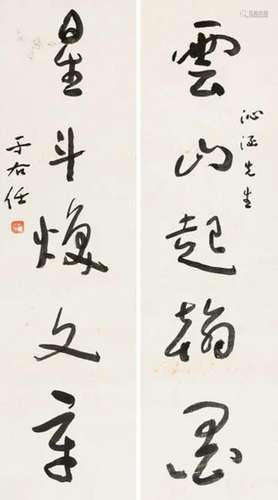 雲山起翰墨
沁涵先生
星斗煥文章
于右任